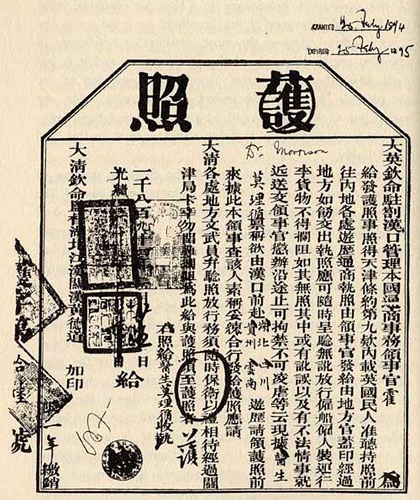 GRANTED 20 Feby 1894
EXPIRED 20 Feby 1895
護照
Dr. Morrison
大英欽命駐劄漢口管理本國通商事務領事官 霍 為
給發護照事照得天津條約第九欵內載英國民人准聽持照前
往內地各處遊歷通商執照由領事官發給由地方官蓋印經過
地方如飭交出執照應可隨時呈驗無訛放行僱船僱人裝運行
李貨物不得攔阻如其無照其中或有訛誤以及有不法情事就
近送交領事官懲辦沿途止可拘禁不可凌虐等云現據醫生
莫理循稟稱欲由漢口前赴湖北四川貴州雲南 遊歷請領護照前
來據此本領事查該人素稱妥練合行發給護照應請
大清各處地方文武員弁驗照放行務須隨時保衛以禮相待經過關
津局卡幸勿為此給與護照須至護照者
護
右照給醫生莫理循收執
一千八百九十 日 給
光緒
大清欽命湖北江漢關漢黃德道 加印
一年繳銷